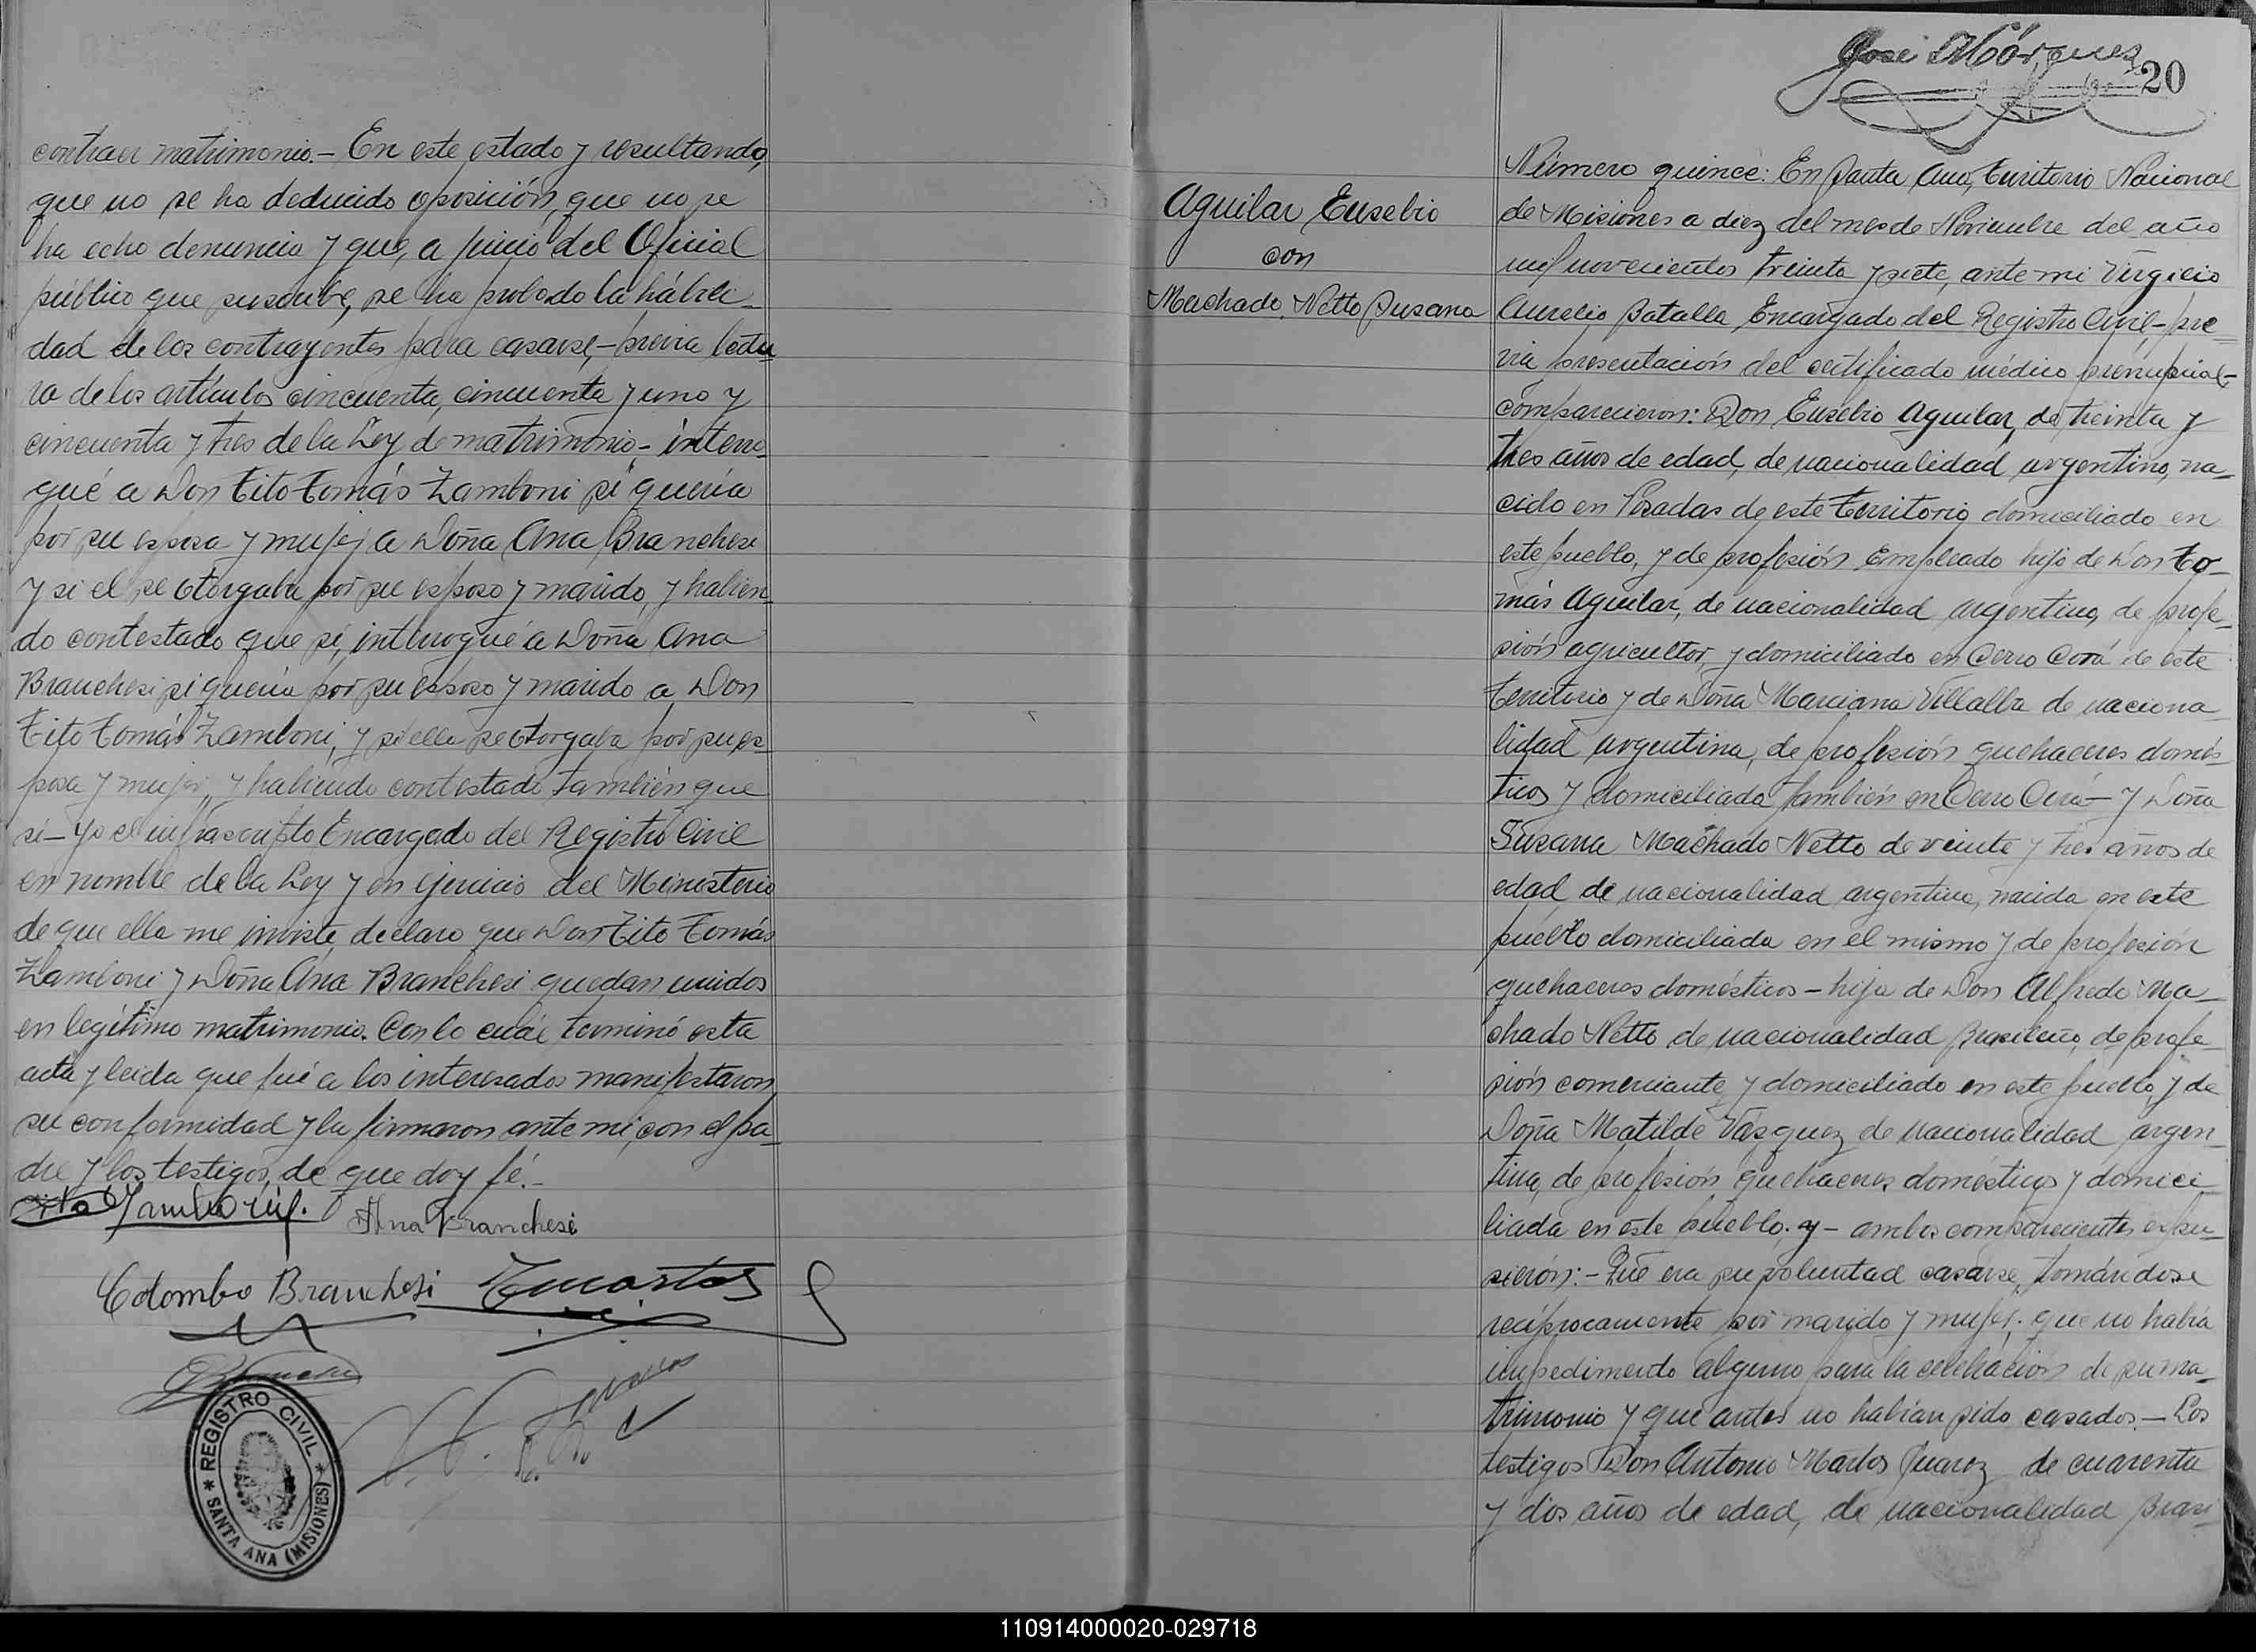 contraer matrimonio.- En este estado y resultando,
que no se ha deducido oposición, que no se
ha echo denuncia y que, a juicio del Oficial
público que suscribe, se ha probado la hábili-
dad de los contrayentes para casarse,- previa lectu
ra de los artículos cincuenta, cincuenta y uno y
cincuenta y tres de la Ley de matrimonio,- interro-
gué a Don Tito Tomás Zamboni si quería
por su esposa y mujer a Doña Ana Branchesi
y si el se otorgaba por su esposo y marido, y habien-
do contestado que sí, interrogué a Doña Ana
Branchesi si quería por su esposo y marido a Don
Tito Tomás Zamboni, y si ella se otorgaba por su es-
posa y mujer, y habiendo contestado también que
sí- Yo el infrascripto Encargado del Registro Civil
en nombre de la Ley y en ejercicio del Ministerio
de que ella me inviste, declaro que Don Tito Tomás
Zamboni y Doña Ana Branchesi quedan unidos
en legítimo matrimonio. Con lo cuál terminó esta
acta y leida que fué a los interesados manifestaron
su conformidad y la firmaron ante mi, con el pa-
dre y los testigos, de que doy fé.-
Ana Branchesi
Colombo Branchesi
* REGISTRO CIVIL * SANTA ANA (MISIONES)
José Márquez
20
Aguilar Eusebio
con
Machado Netto Susana
Número quince: En Santa Ana, Territorio Nacional
de Misiones a diez del mes de Noviembre del año
mil novecientos treinta y siete, ante mi Virgilio
Aurelio Batalla, Encargado del Registro Civil,- pre-
via presentación del certificado médico prenupcial-
comparecieron: Don Eusebio Aguilar, de treinta y
tres años de edad, de nacionalidad argentino, na-
cido en Posadas de este Territorio domiciliado en
este pueblo, y de profesión Empleado hijo de Don To-
más Aguilar, de nacionalidad argentino, de profe-
sión agricultor, y domiciliado en Cerro Corá de este
Territorio y de Doña Marciana Villalba de naciona
lidad argentina, de profesión quehaceres domés-
ticos y domiciliada también en Cerro Corá- y Doña
Susana Machado Netto de veinte y tres años de
edad de nacionalidad argentina, nacida en este
pueblo domiciliada en el mismo y de profesión
quehaceres domésticos - hija de Don Alfredo Ma-
chado Netto de nacionalidad Brasileño, de profe-
sión comerciante y domiciliado en este pueblo, y de
Doña Matilde Vásquez de nacionalidad argen-
tina, de profesión quehaceres domésticos y domici
liada en este pueblo. y - ambos comparecientes expu-
sierón:- Que era su voluntad casarse, tomándose
recíprocamente por marido y mujer. que no había
impedimento alguno para la celebración de su ma-
trimonio y que antes no habían sido casados.- Los
testigos Don Antonio Martos Juarez de cuarenta
y dos años de edad, de nacionalidad Brasi-
110914000020-029718